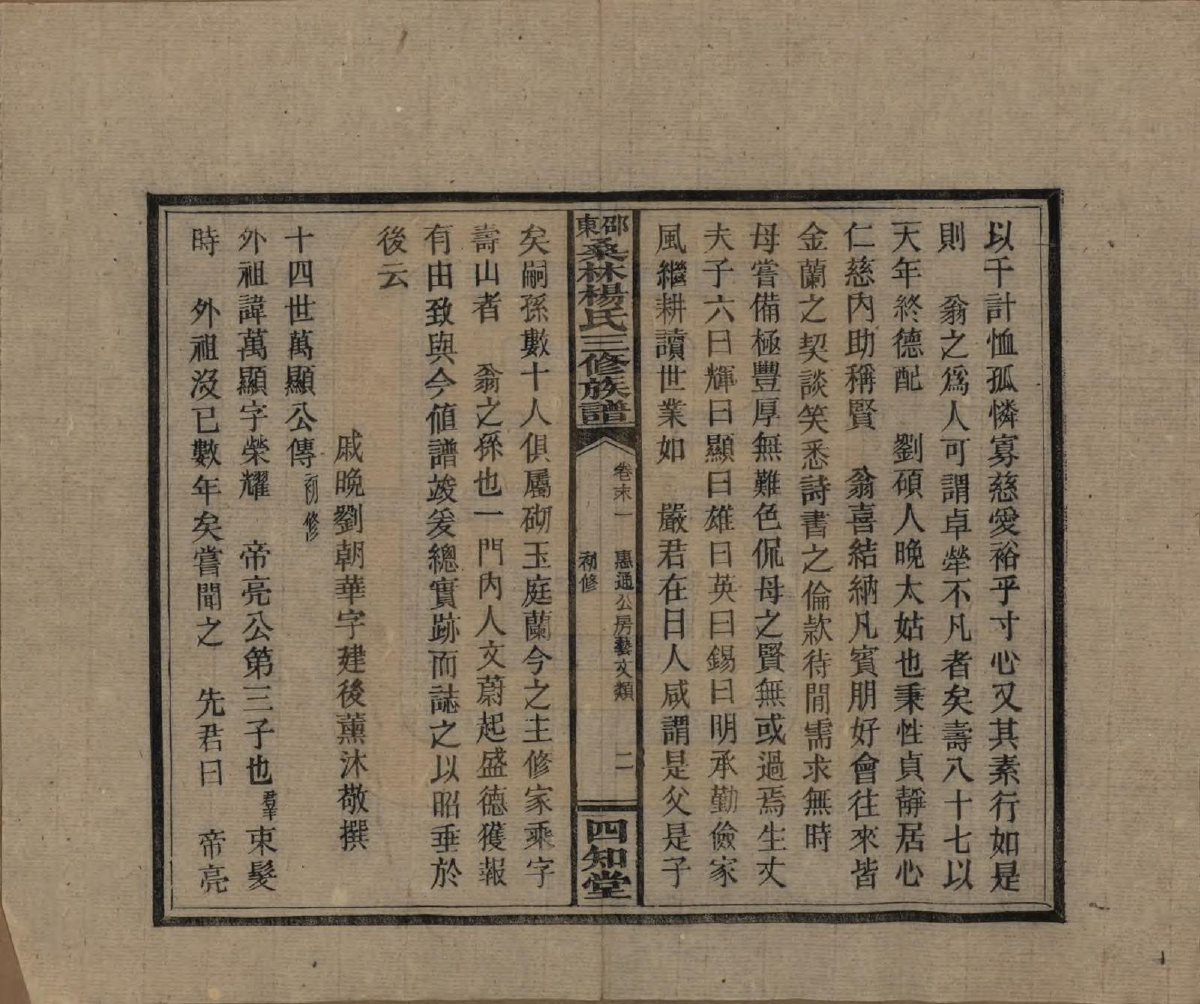 以千計恤孤憐寡慈愛裕乎寸心又其素行如是
則　翁之爲人可謂卓犖不凡者矣壽八十七以
天年終德配　劉碩人晚太姑也秉性貞靜居心
仁慈內助稱賢　翁喜結納凡賓朋好會往來皆
金蘭之契談笑悉詩書之倫款待間需求無時
母嘗備極豐厚無難色侃母之賢無或過焉生丈
夫子六曰輝曰顯曰雄曰英曰錫曰明承勤儉家
風繼耕讀世業如　嚴君在日人咸謂是父是子
邵東桑林楊氏三修族譜
卷末一　惠通公房藝文類　二
初修
四知堂
矣嗣孫數十人俱屬砌玉庭蘭今之主修家乘字
壽山者　翁之孫也一門內人文蔚起盛德獲報
有由致與今值譜竣爰總實跡而誌之以昭垂於
後云
戚晚劉朝華字建後薰沐敬撰
十四世萬顯公傳初修
外祖諱萬顯字榮耀　帝亮公第三子也群束髮
時　外祖沒已數年矣嘗聞之　先君曰　帝亮